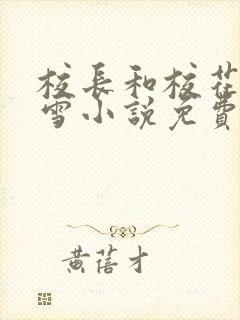 校長和校花
雪小說免費
黃蓓才